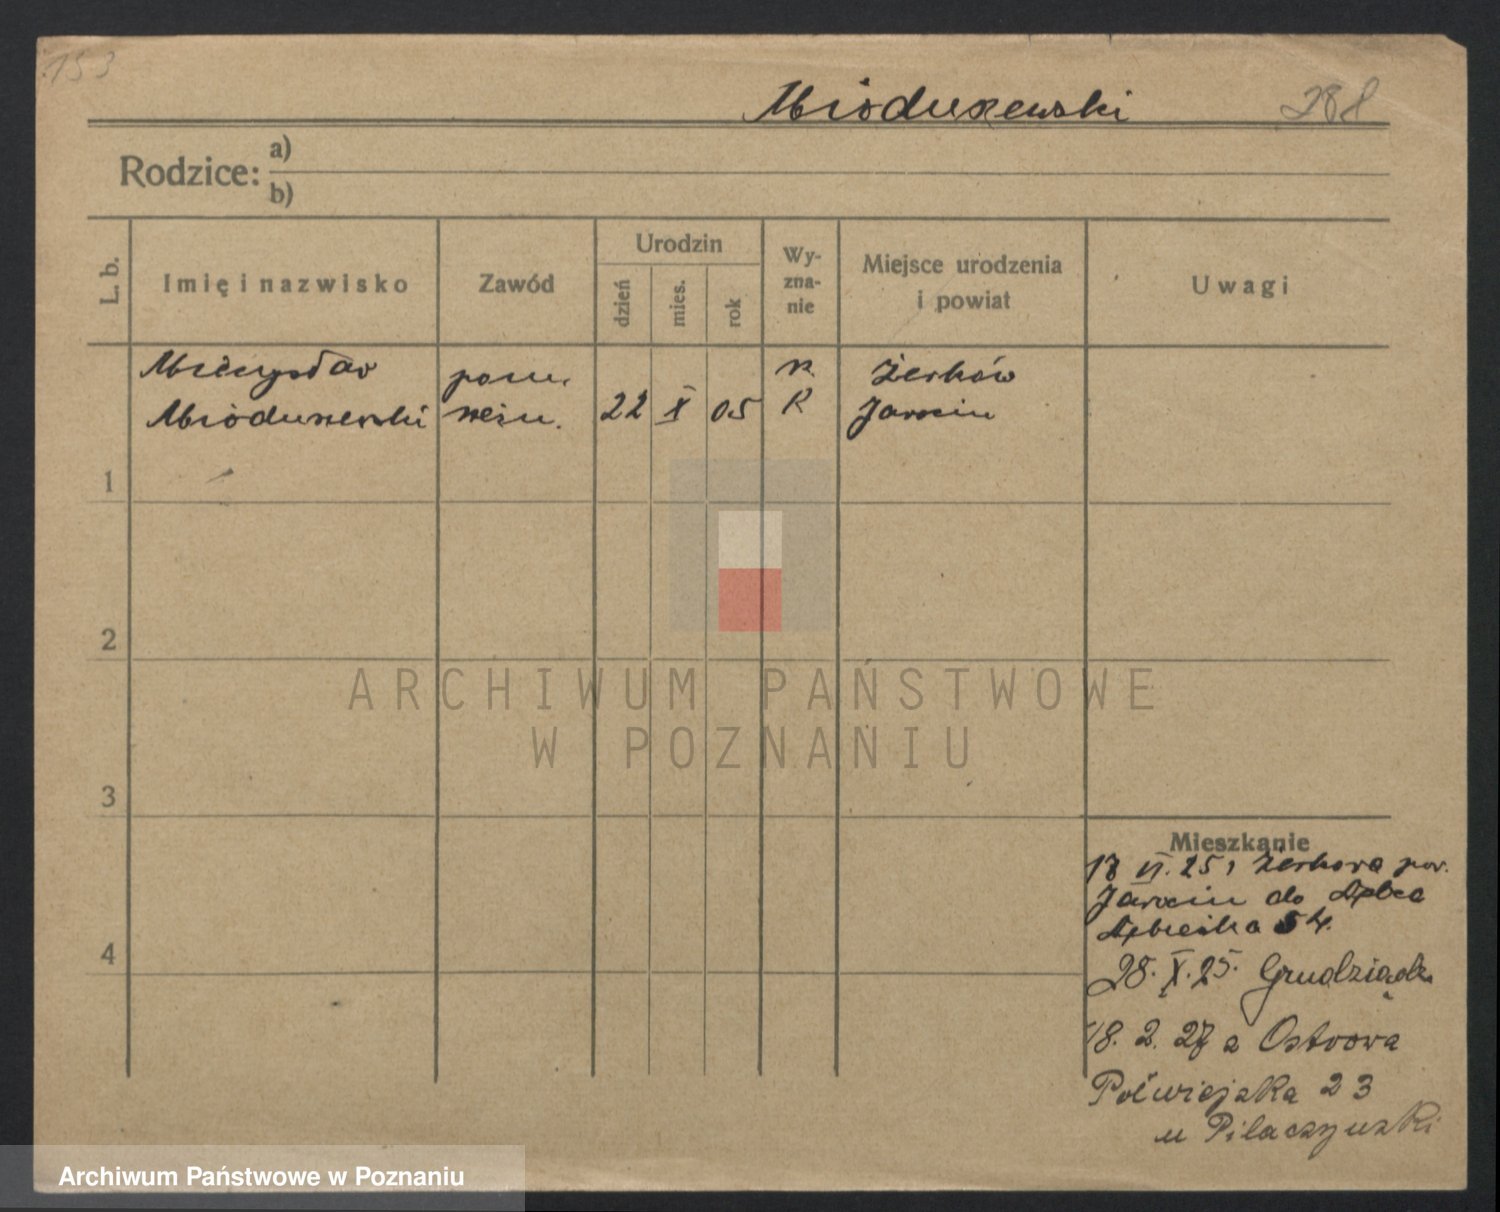 153
Mioduszewski 288
Rodzice: a)
b)
L. b.
Imię i nazwisko
Zawód
Urodzin
dzień
mies.
rok
Wy-
zna-
nie
Miejsce urodzenia
i powiat
Uwagi
Mieczysław
Mioduszewski
pom.
rzeźn.
22 X 05
R
Żerków
Jarocin
1
2
3
4
ARCHIWUM PAŃSTWOWE
W POZNANIU
Mieszkanie
VI. 25 z Żerkowa pow.
Jarocin do
54.
28. X. 25. Grudziądz
18. 2. 27 z Ostrowa
Półwiejska 23
u Pilaczyński
Archiwum Państwowe w Poznaniu